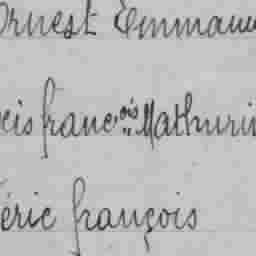 Ernest Emmanu
cis franc.ois Mathurin
éric françois